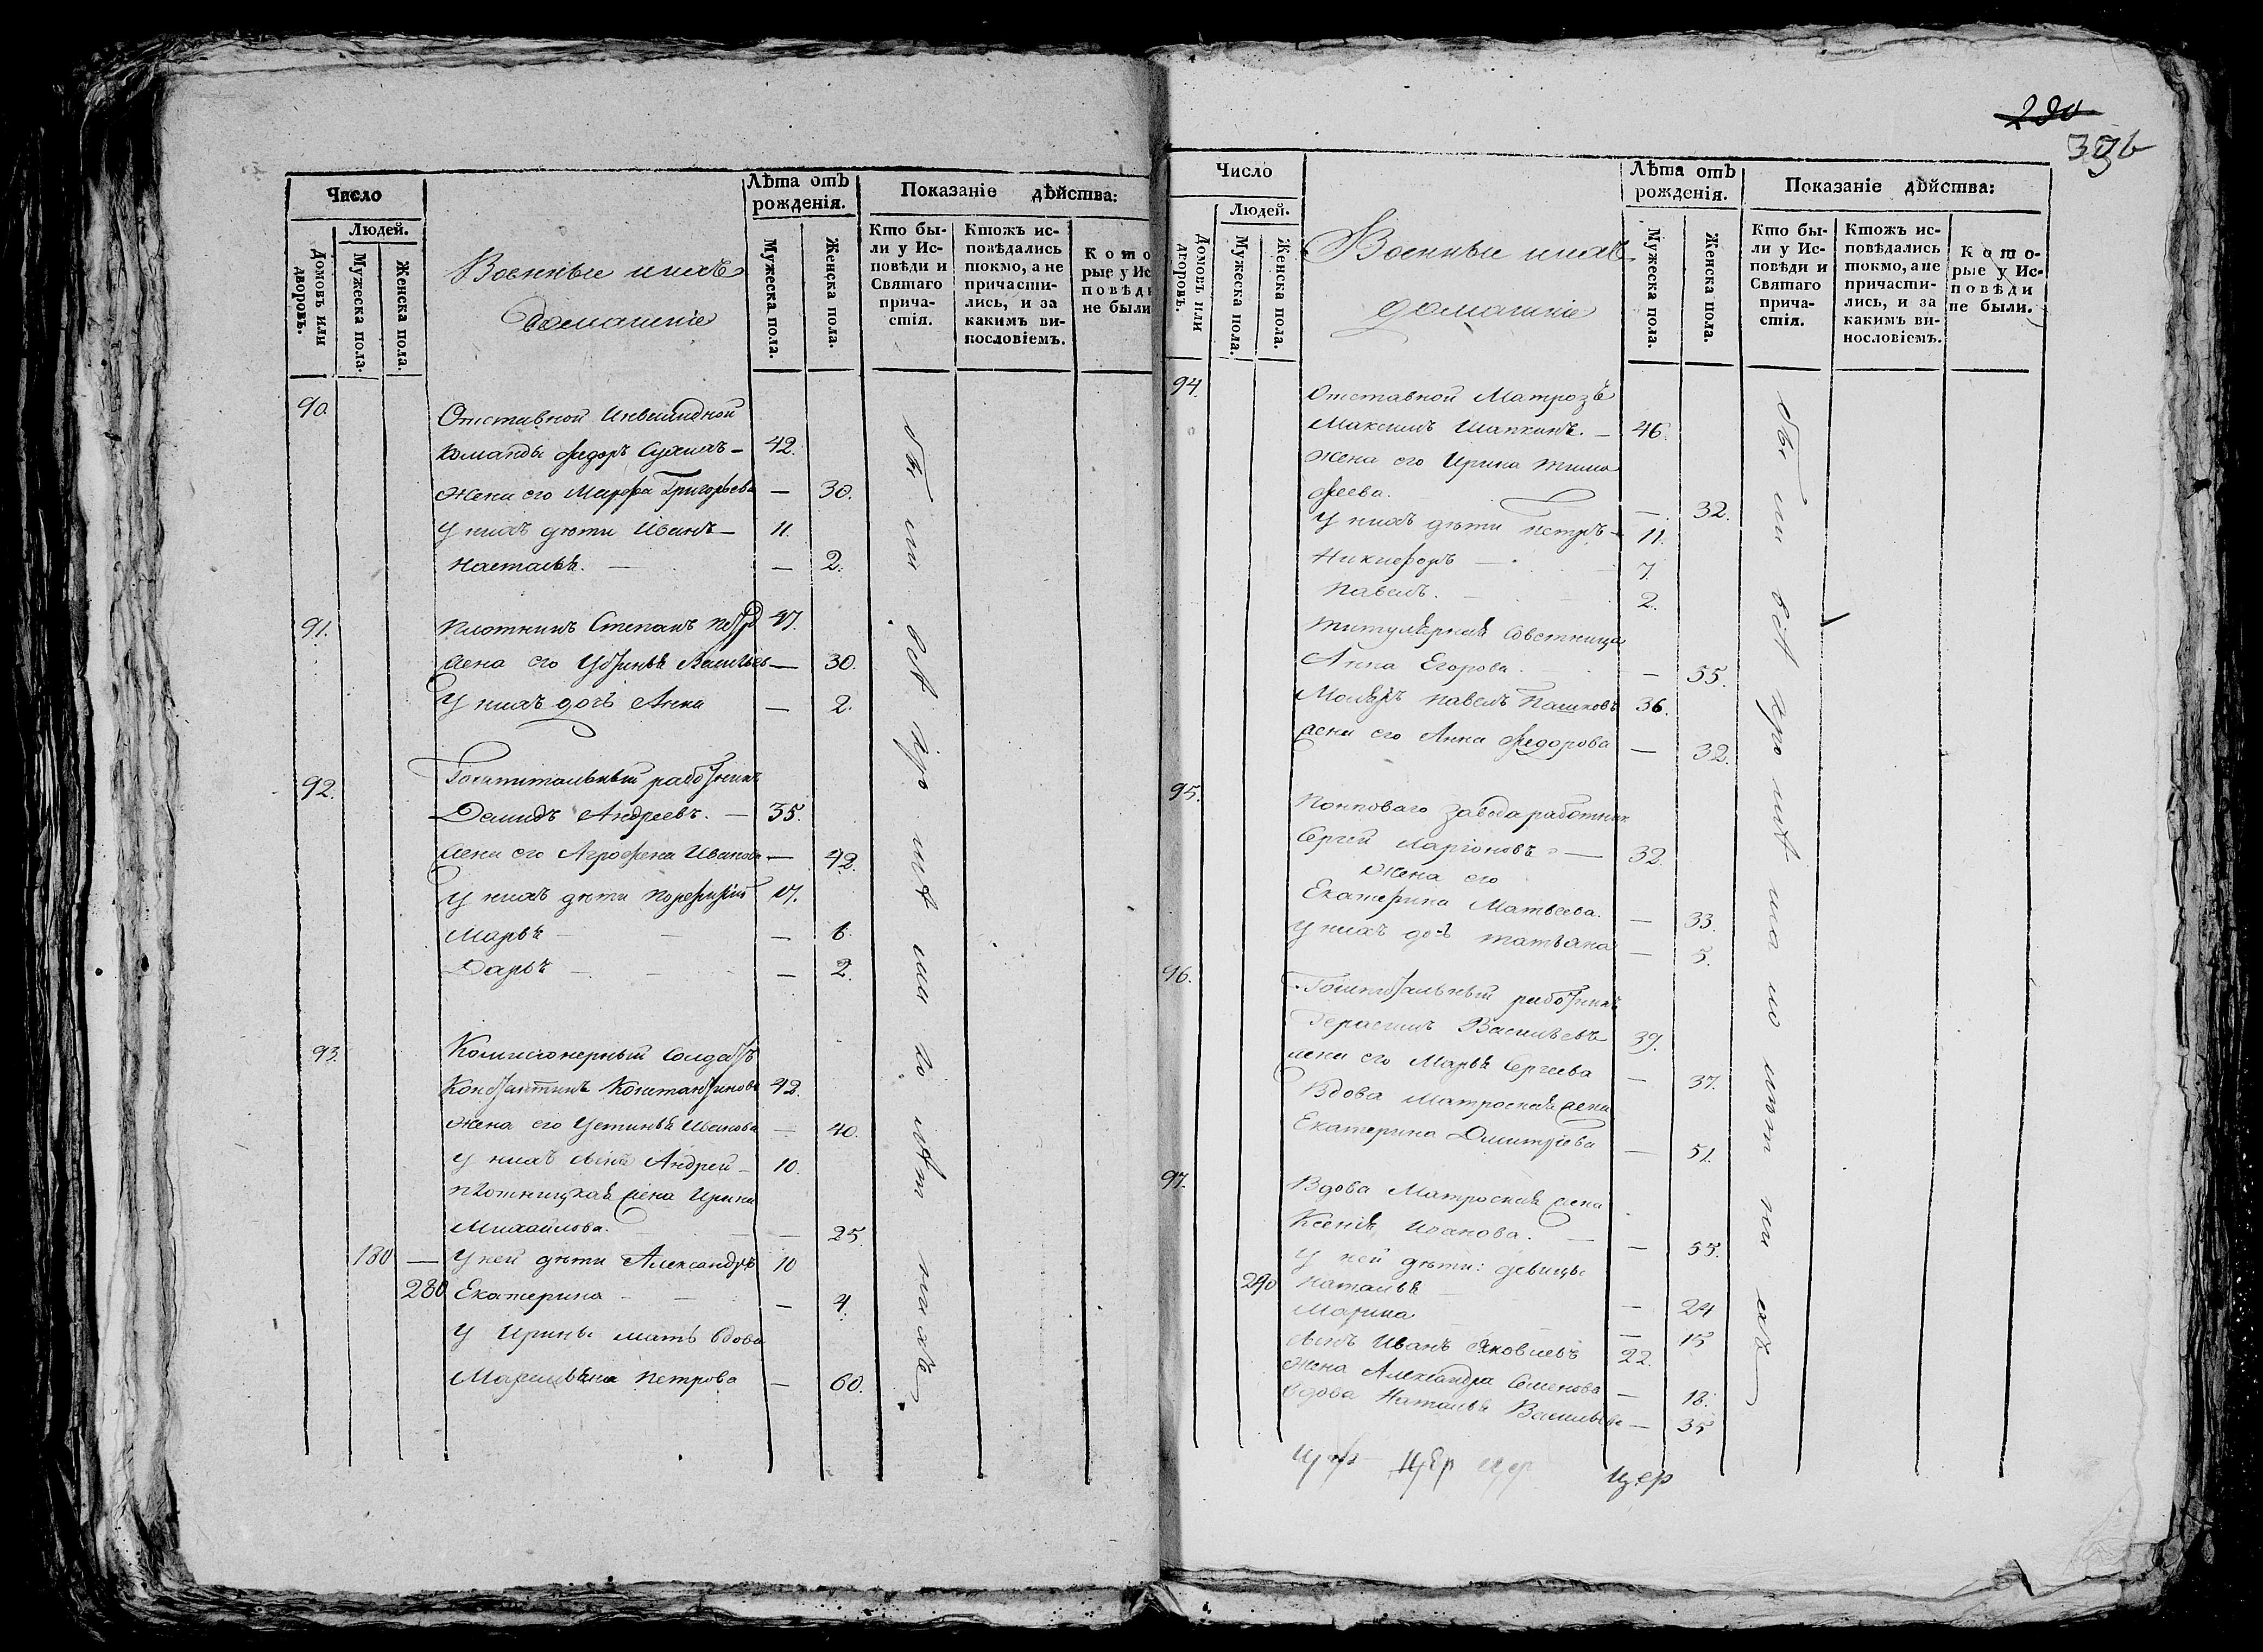 Число
Людей.
Домовъ или дворовъ.
Мужеска пола.
Женска пола.
Военные ихъ
домашніе
Лѣта отъ
рожденія.
Мужеска пола.
Женска пола.
Показаніе дѣйства:
Кто бы-
ли у Ис-
повѣди и
Святаго
прича-
стія.
Ктожъ ис-
повѣдались
токмо, а не
причасти-
лись, и за
какимъ ви-
нословіемъ.
К о т о
рые у Ис
п о в ѣ д
не были
90.
Отставной Инвалидной
команды Федоръ — 42.
жена его Марфа Григорьева — 30.
у нихъ дѣти Иванъ — 11.
Наталья. — 2.
91. Плотникъ Степанъ 47.
жена его Устинья — 30.
у нихъ дочь Анна — 2.
92. Гошпитальный работникъ
Демидъ Андреевъ. — 35.
жена его Агрофена Иванова — 42.
у нихъ дѣти Порфирий 17.
Марья — 6.
Дарья — 2.
93. Комисионерный Солдатъ
Константинъ Константиновъ 42.
жена его Устинья Иванова — 40.
у нихъ сынъ Андрей — 10.
плотницкая жена Ирина
Михайлова. — 25.
180 — у ней дѣти Александръ 10
280 Екатерина — 4.
у Ирины мать вдова
Петрова — 60.
290
Число
Людей.
Домовъ или дворовъ.
Мужеска пола.
Женска пола.
Военные ихъ
домашніе
Лѣта отъ
рожденія.
Мужеска пола.
Женска пола.
Показаніе дѣйства:
Кто бы-
ли у Ис-
повѣди и
Святаго
прича-
стія.
Ктожъ ис-
повѣдались
токмо, а не
причасти-
лись, и за
какимъ ви-
нословіемъ.
К о т о-
рые у Ис-
п о в ѣ д и
не были.
94.
Отставной Матрозъ
Максимъ Шапкинъ. — 46.
жена его Ирина Тимо
феева. — 32.
у нихъ дѣти Петръ — 11.
Никифоръ — 7.
Павелъ. 2.
Титулярная Совѣтница
Анна Егорова. — 55.
Павелъ Пашковъ 36.
жена его Анна Федорова — 32.
95.
завода работник
Сергей Ларіоновъ — 32.
жена его
Екатерина Матвеева. — 33.
у нихъ дочь Татьяна — 5.
96.
Гошпитальный работникъ
Герасимъ Васильевъ 39.
жена его Марья Сергеева — 37.
Вдова Матроская жена
Екатерина Дмитріева — 51.
97.
Вдова Матроская жена
Ксенія Иванова. — 55.
у ней дѣти: девицы
290 Наталья — 24
Марина — 15
сынъ Иванъ Яковлевъ 22.
жена Александра Семенова — 18.
вдова Наталья Васильева — 35
цер